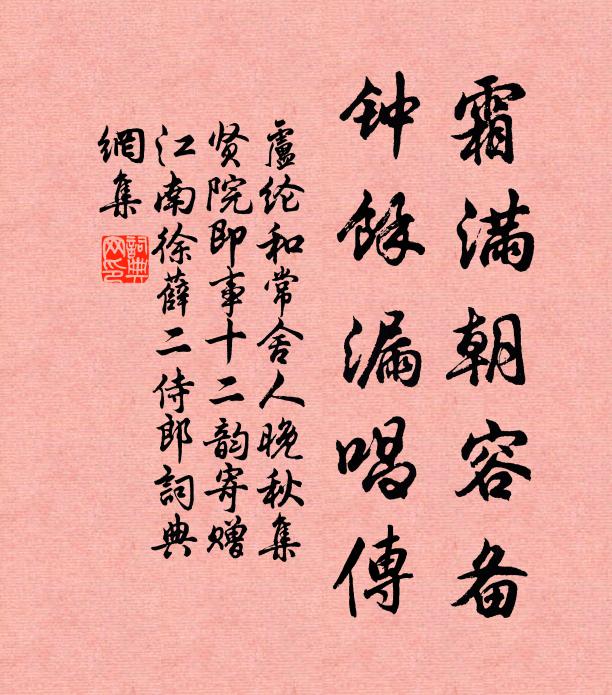 霜满朝容备
钟馀漏唱傳
盧纶和常舍人晚秋集
贤院即事十二韵寄赠
江南徐薛二侍郎詞典
網集
詞典網印